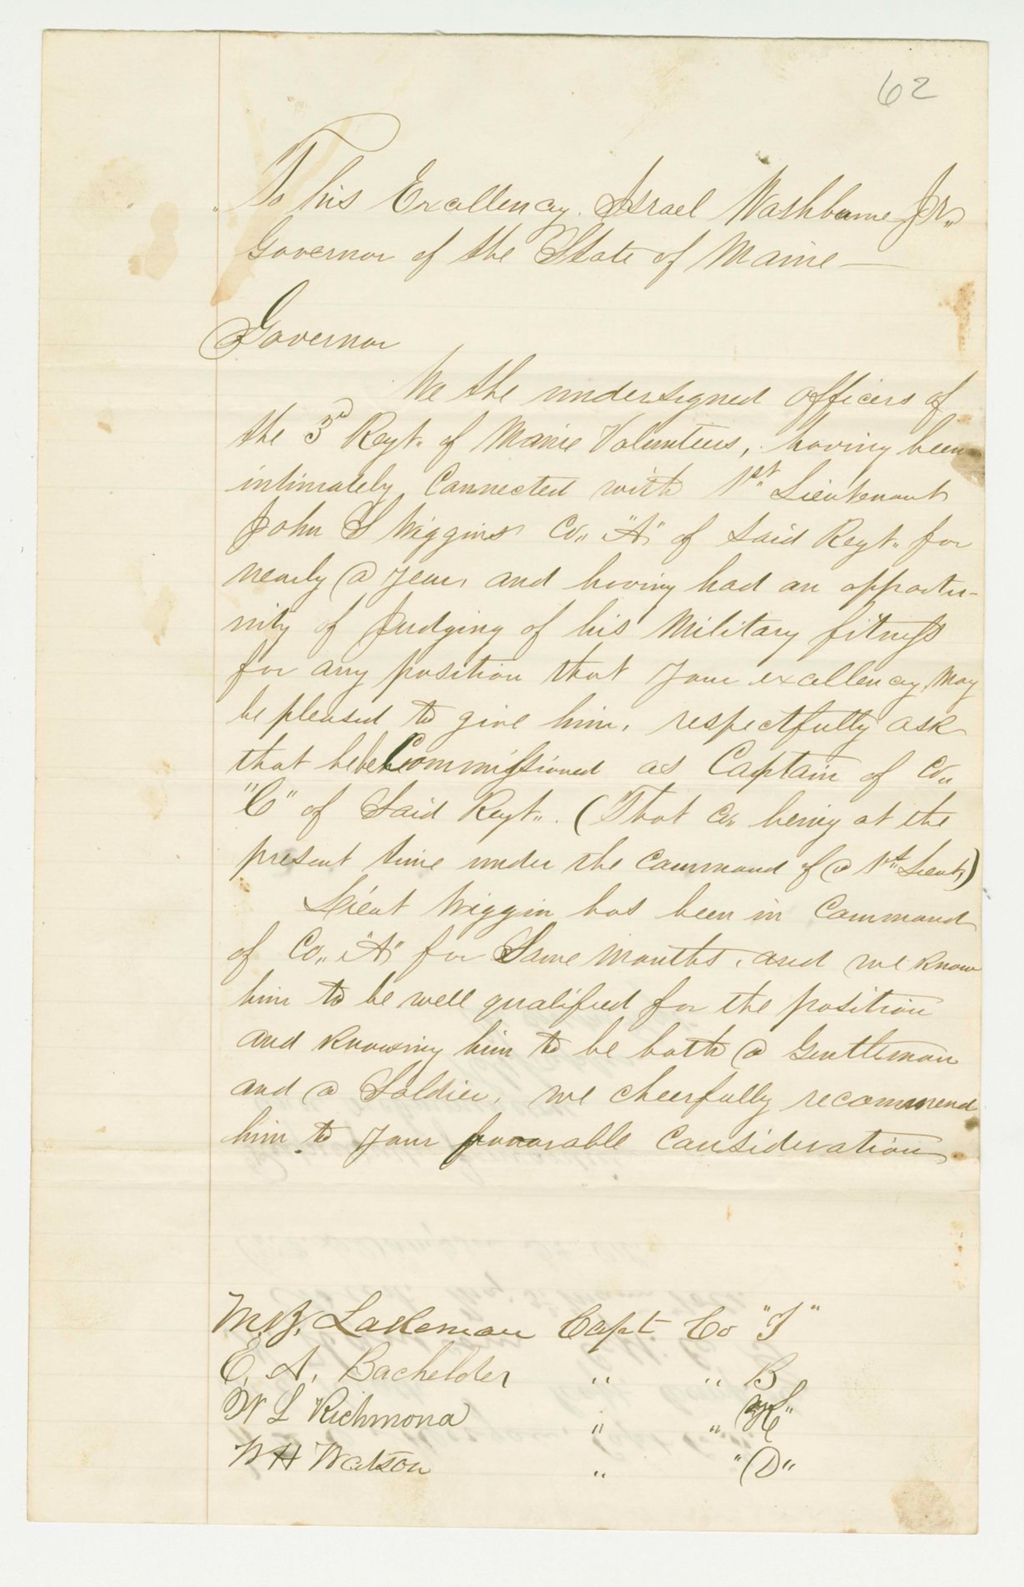 62
To his Excellency. Israel Washburne Jr.,
Governor of the State of Maine —
Governor
We the undersigned officers of
the 3d Regt. of Maine Volunteers, having been
intimately Connected with 1st Lieutenant
John S Wiggins Co,, "A" of Said Regt. for
nearly a year and having had an opportu-
nity of Judging of his Military fitness
for any position that your excellency may
be pleased to give him, respectfully ask
that he be Commissioned as Captain of Co,,
"C" of Said Regt,,. (That Co. being at the
present time under the Command of a 1st Lieut,)
Lieut Wiggin has been in Command
of Co,, "A" for Some months, and we know
him to be well qualified for the position
and knowing him to be both a Gentleman
and a Soldier, we cheerfully recommend
him to your favorable Consideration
M.B. Lakeman Capt Co "I"
E. A. Bachelder " " B
W L Richmond " " "H"
W H Watson " " "D"